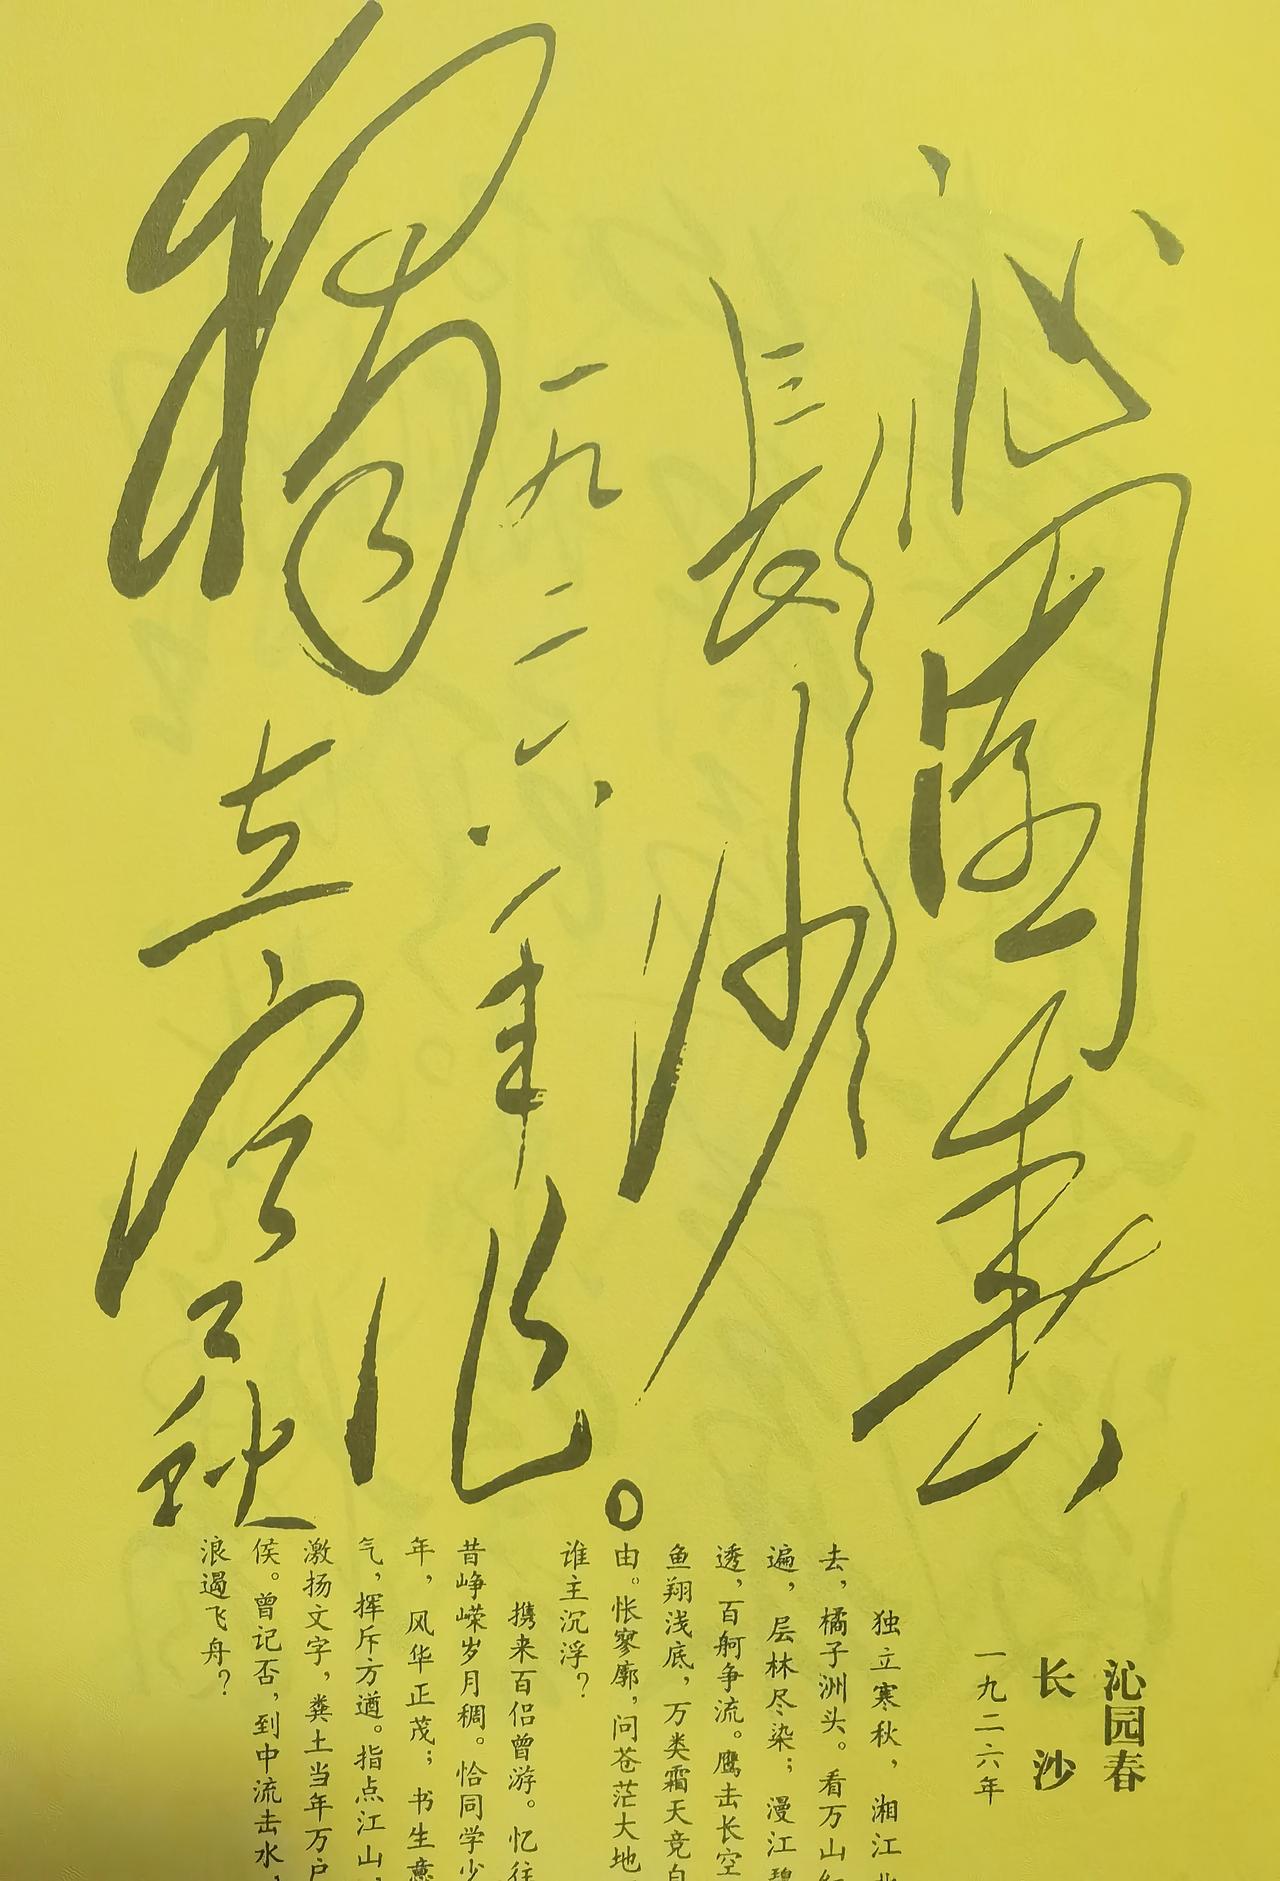 沁園春
長沙
一九二六年作。
獨立寒秋
沁园春
长沙
一九二六年
独立寒秋，湘江北
去，橘子洲头。看万山红
遍，层林尽染；漫江碧
透，百舸争流。鹰击长空
鱼翔浅底，万类霜天竞自
由。怅寥廓，问苍茫大地
谁主沉浮？
携来百侣曾游。忆往
昔峥嵘岁月稠。恰同学少
年，风华正茂；书生意
气，挥斥方遒。指点江山，
激扬文字，粪土当年万户
侯。曾记否，到中流击水，
浪遏飞舟？